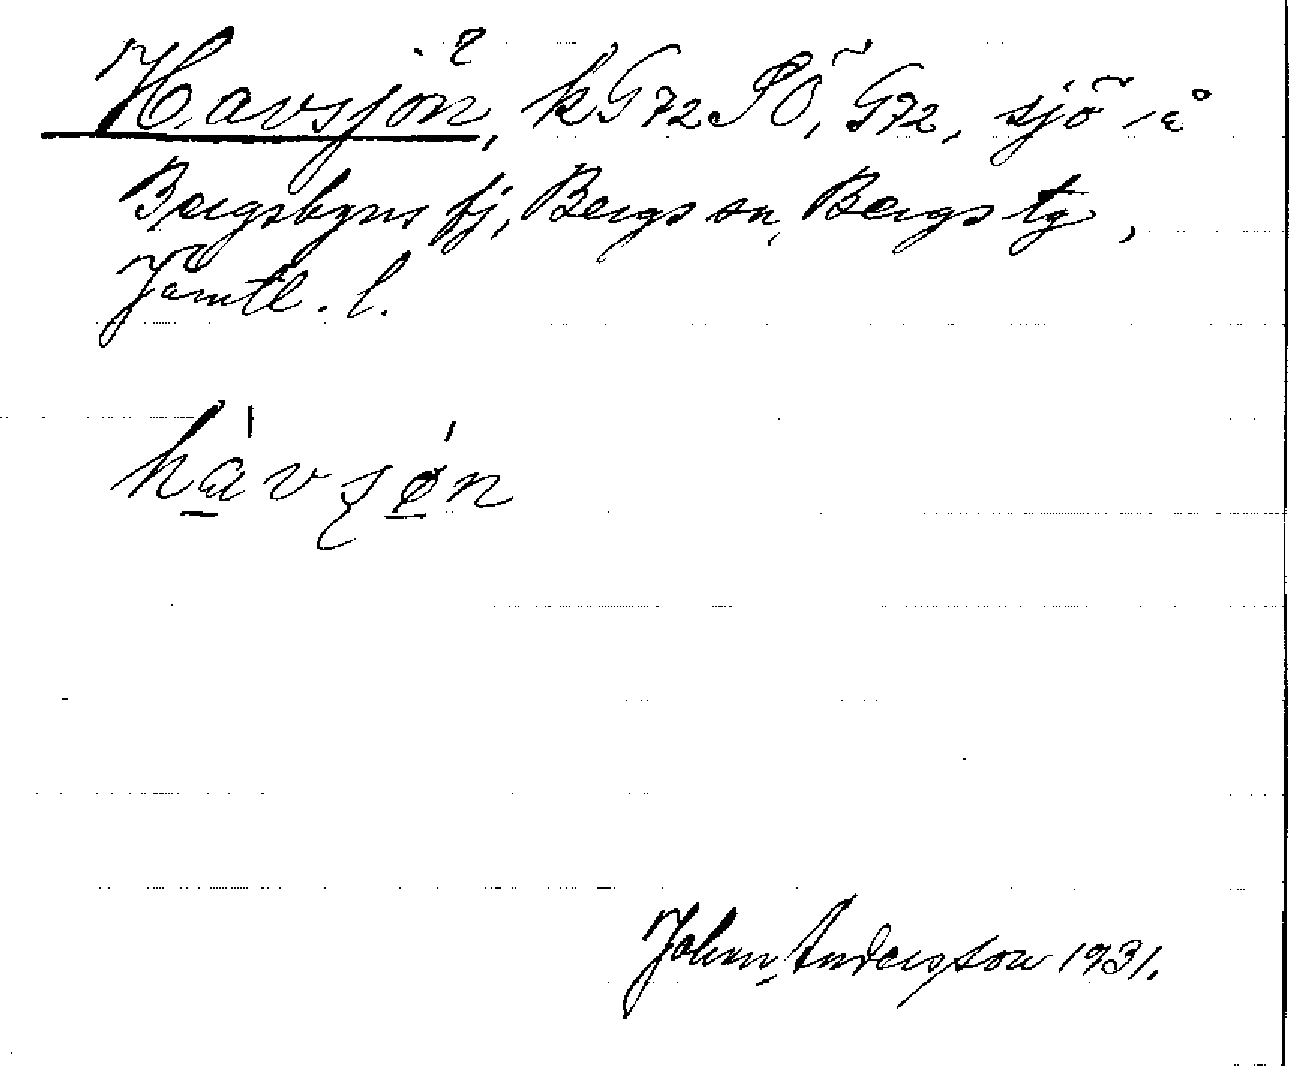 Havsjön, kG72SÖ, G72, sjö i å
Bergsbyns fj, Bergs sn, Bergs tg,
Jämtl. l.
hàvʂǿn
John Andersson 1931.